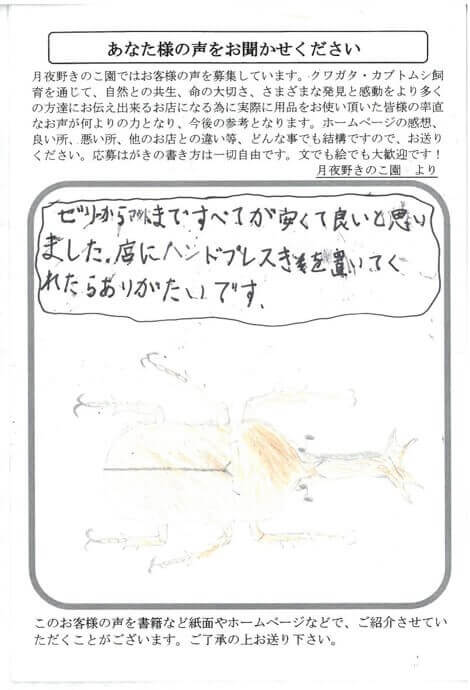 あなた様の声をお聞かせください
月夜野きのこ園ではお客様の声を募集しています。クワガタ・カブトムシ飼
育を通じて、自然との共生、命の大切さ、さまざまな発見と感動をより多く
の方達にお伝え出来るお店になる為に実際に用品をお使い頂いた皆様の率直
なお声が何よりの力となり、今後の参考となります。ホームページの感想、
良い所、悪い所、他のお店との違い等、どんな事でも結構ですので、お送り
ください。応募はがきの書き方は一切自由です。文でも絵でも大歓迎です！
月夜野きのこ園　より
ゼリーからマットまですべてが安くて良いと思い
ました。店にハンドプレスきを置いてく
れたらありがたいです。
このお客様の声を書籍など紙面やホームページなどで、ご紹介させてい
ただくことがございます。ご了承の上お送り下さい。